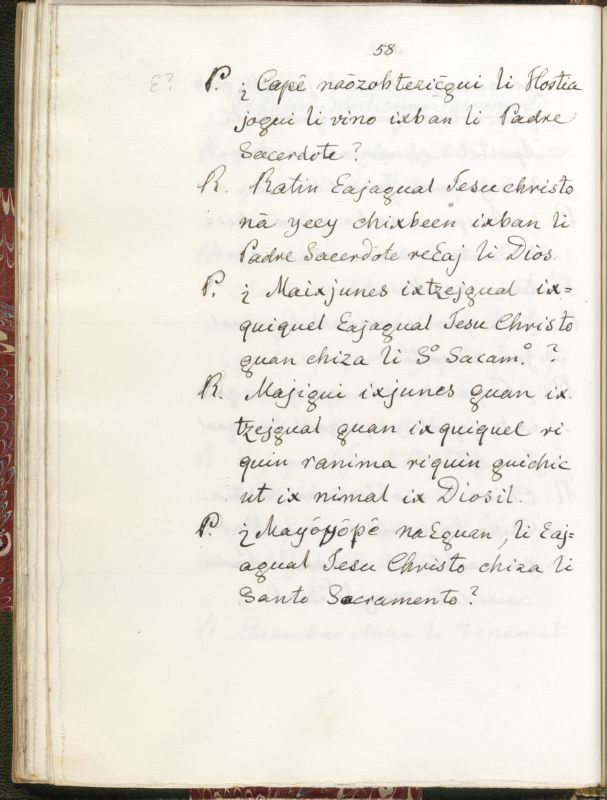 58
P. ¿ Capê naōzobtezic̄gui li Hostia
jogui li vino ixban li Padre
Sacerdote?
R. Ratin Eajagual Jesuchristo
nā yeey chixbeen ixban li
Padre Sacerdote reEaj li Dios.
P. ¿ Maixjunes ixtzejgual ix=
quiquel Eajagual Jesu Christo
guan chiza li Sº Sacam.º ?
R. Majigui ixjunes guan ix
tzejgual guan ix quiquel ri
quin ranima riquin guichic
ut ix nimal ix Diosil.
P. ¿ Mayōyōpê naEguan, li Eaj=
agual Jesu Christo chiza li
Santo Sacramento?